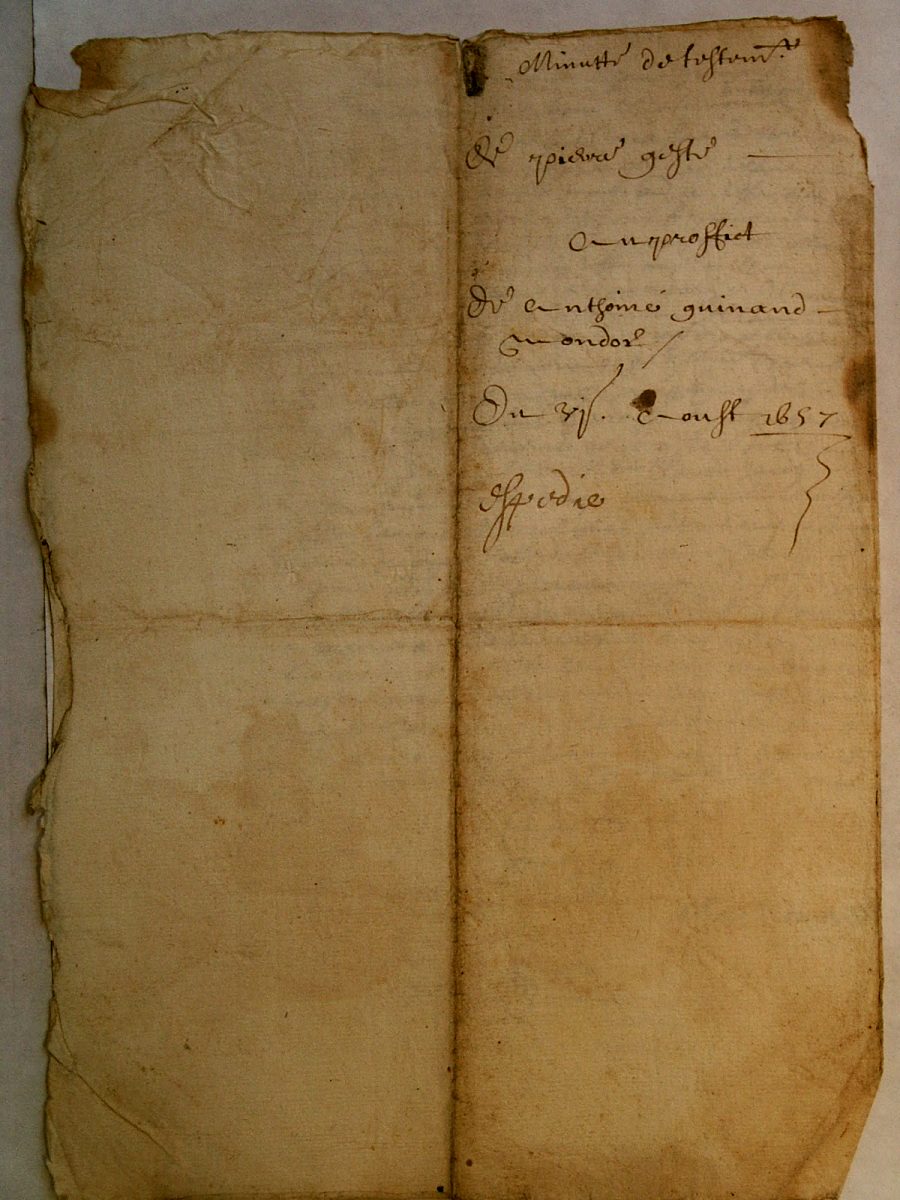 Minutte de testem.te
De pierre geste
Au proffict
De Anthoine guinand
Mondor
Du vj. Aoust 1657
espedie